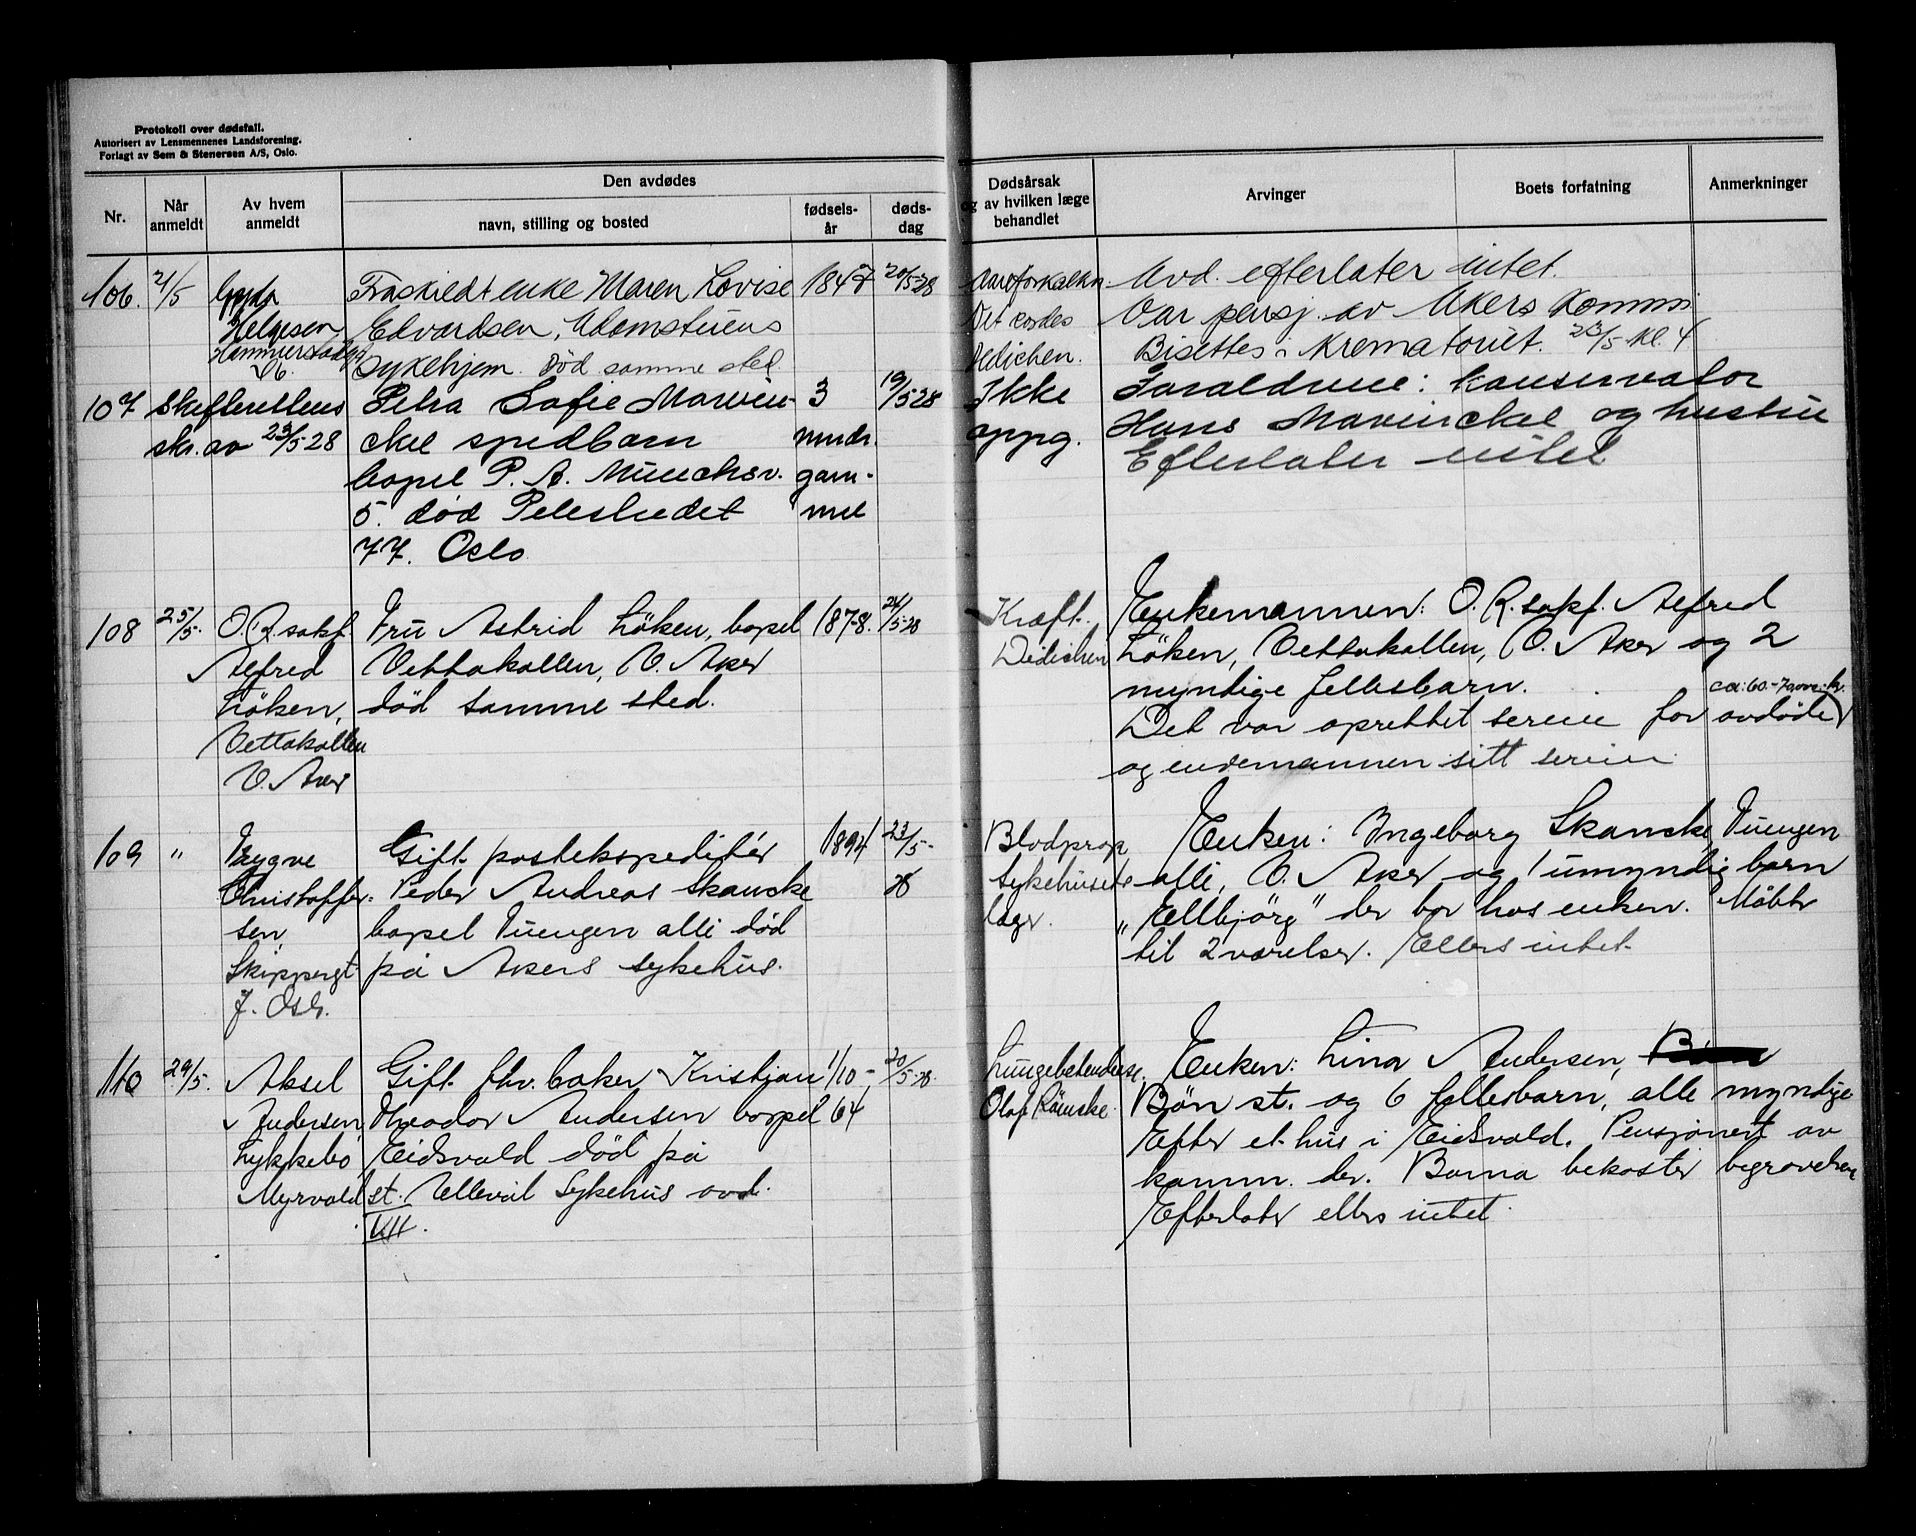 Protokoll over dødsfall.
Autorisert av Lensmennenes Landsforening.
Forlagt av Sem & Stenersen A/S, Oslo.
Nr.
Når anmeldt
Av hvem anmeldt
Den avdødes
navn, stilling og bosted
fødsels-år
døds-dag
Dødsårsak og av hvilken læge behandlet
Arvinger
Boets forfatning
Anmerkninger
106. 21/5
Helgesen
Hammerstadgt
Fraskildt enke Maren Lovise 1847 20/5-28
Edvardsen, Adamstuens
Sykehjem. Død samme sted
Dedichen.
Avd. efterlater intet.
Var pensj. av Akers Komm.
Bisettes i Krematoriet. 23/5 kl. 4
107 Skifterettens
skr. av 23/5-28
Petra Sofie Marvin- 3 19/5 28
ckel spedbarn mndr.
bopel P. A. Munchsv. gam-
5. død mel
77. Oslo
Ikke
oppg.
Foreldrene: konservator
Hans Marvinckel og hustru
Efterlater intet
108 25/5. O. R. sakf.
Alfred
Löken,
Vettakollen
V. Aker
Fru Astrid Löken, bopel 1878. 24/5-28
Vettakollen, V. Aker
død samme sted.
Kræft.
Dedichen
Enkemannen: O. R. sakf. Alfred
Löken, Vettakollen, V. Aker og 2
myndige fellesbarn.
Det var oprettet særeie for avdøde
og enkemannen sitt særeie
109 "
Trygve
Christoffer-
sen,
Skippergt
7. Oslo.
Gift postekspeditør 1894 23/5-
Peder Andreas Skancke 28
bopel Tuengen alle død
på Akers sykehus.
Blodprop
Sykehusets
læger.
Enken: Ingeborg Skancke, Tuengen
alle, V. Aker og 1 umyndig barn
"Ellbjörg" der bor hos enken. Møbler
til 2 værelser. Ellers intet.
110 29/5.
Aksel
Andersen
Lykkebo
Myrvold st.
Gift fhv. baker Kristian 1/10- 20/5-28.
Theodor Andersen bopel 64
Eidsvold død på
Ullevål Sykehus avd.
VII.
Lungebetendelse.
Enken: Lina Andersen,
Bøn st. og 6 fellesbarn, alle myndige
Efter et hus i Eidsvold. Pensjonert av
komm. der. Barna bekoster begravelsen
Efterlater ellers intet.